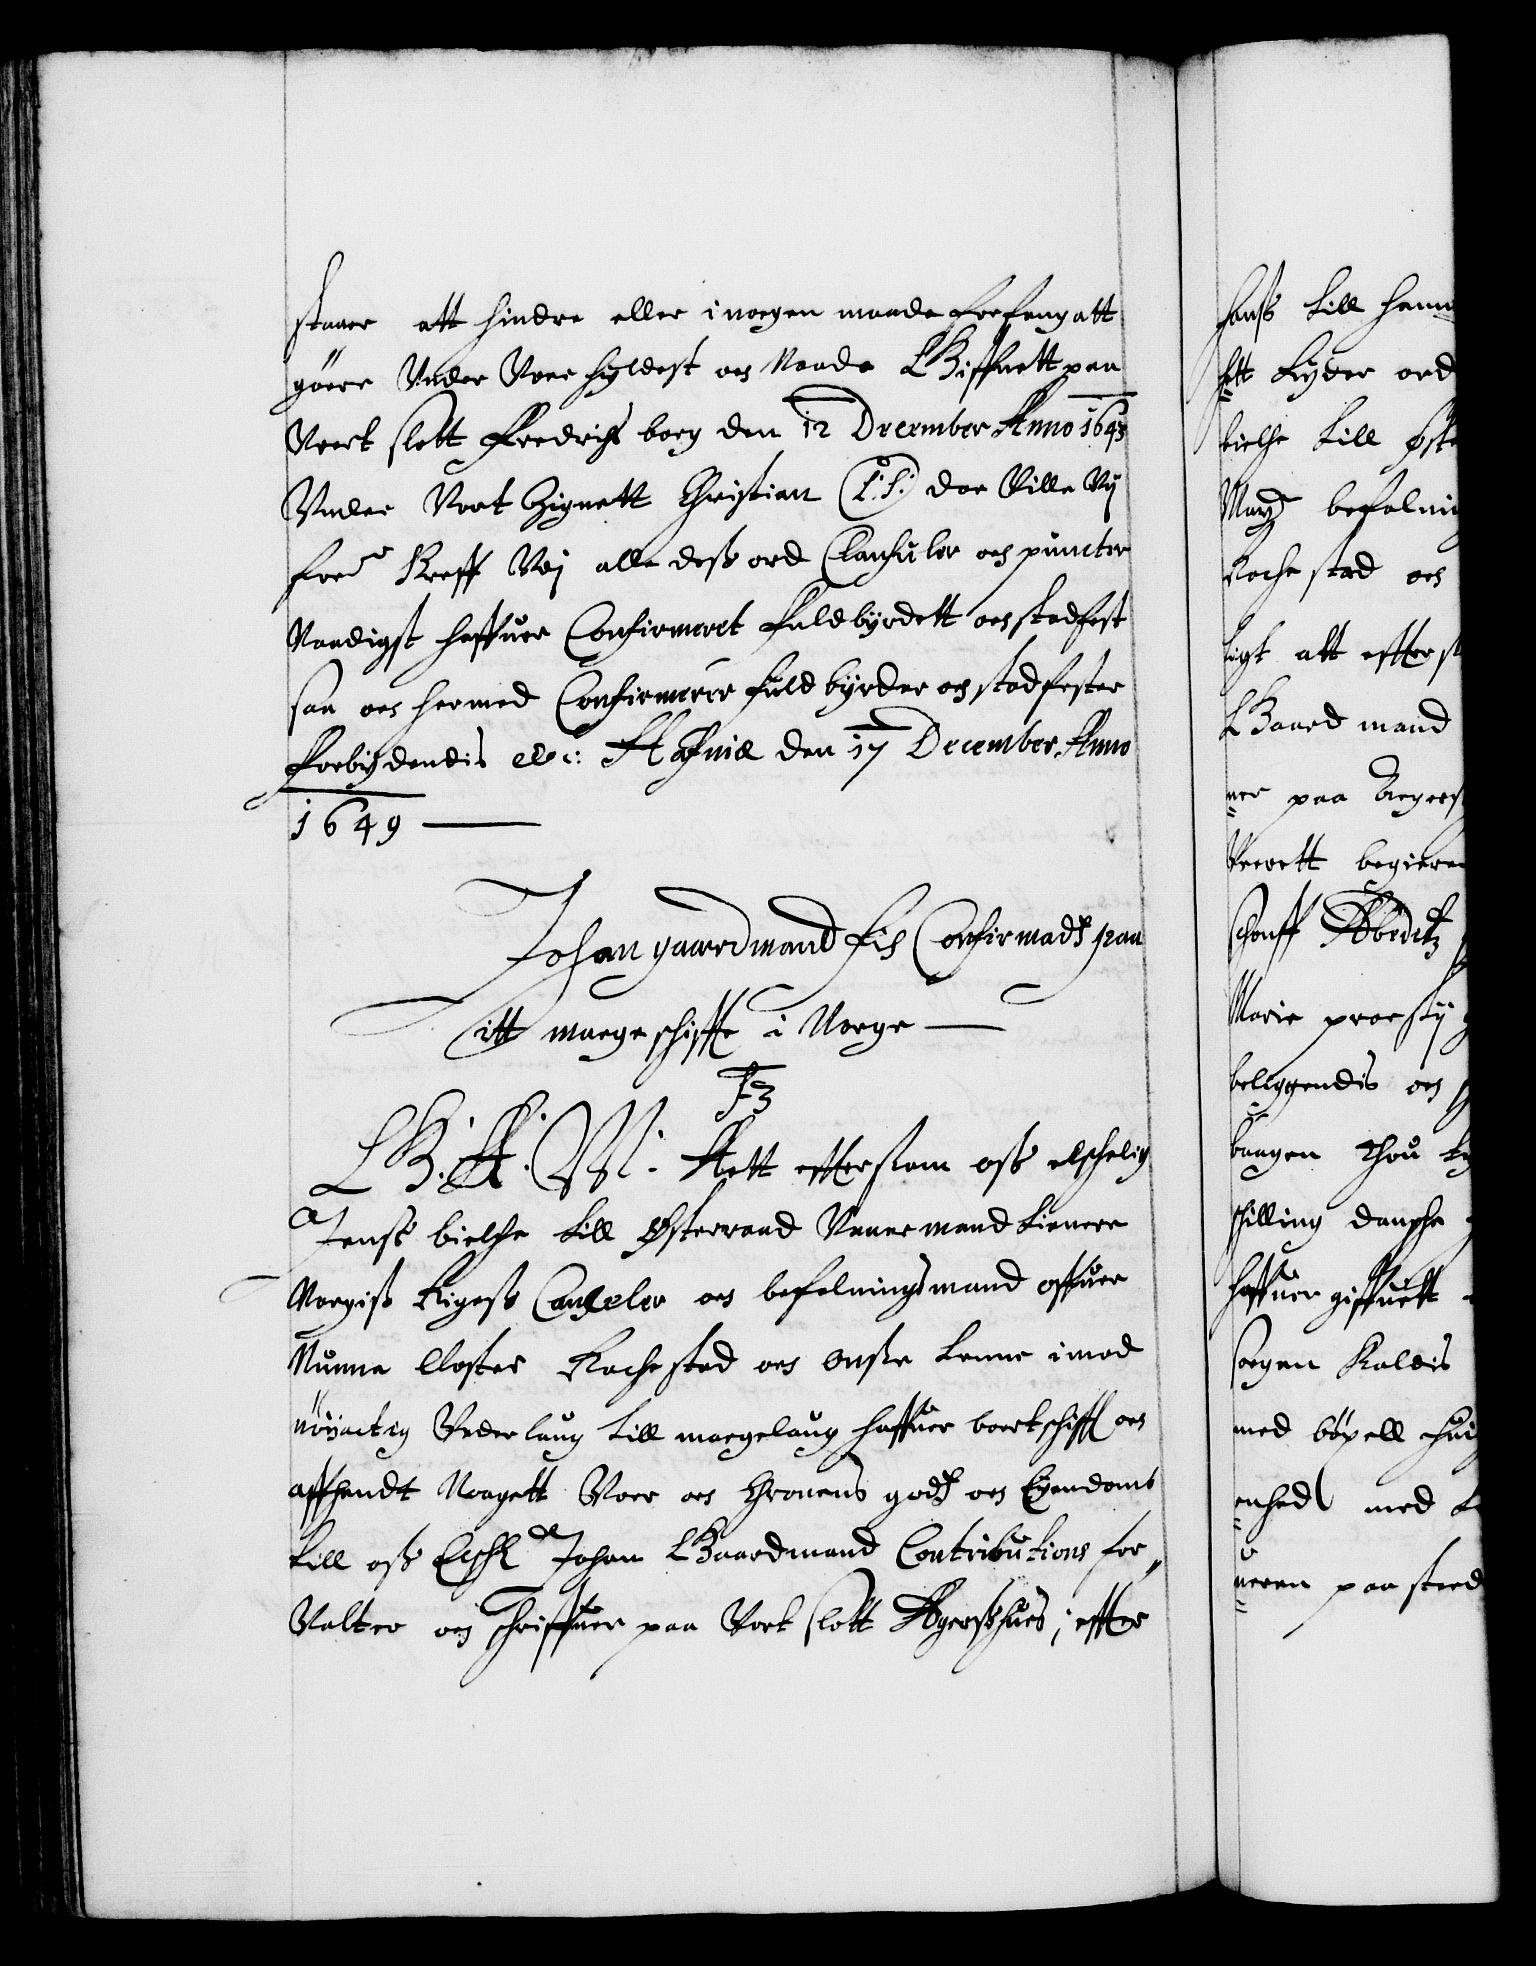 staaer att hindre eller i nogen maade forfang att
giöere Vnder Voer hyldest och Naade Giffuett paa
Voert slott Fredrichs borg den 12 December Anno 1643
Vnder Vort Zignett Christian (L. S.) da Ville Vij
ford Breff Vdj alle dess ord Clausuler och puncter
Naadigst haffuer Confirmeret fuldbyrdett och stadfest
saa och hermed Confirmerer fuldbyrder och stadfester
Forbydendis etc: Hafniæ den 17 December Anno
1649
Johan gaardmand fick Confirmads paa
itt mageschiffte i Norge
F3
G. A. W. Att effterson oss elschelig
Jenss bielche till Østerraad Vaaer mand tienere
Norgiss Rigess Canzeler och befalningsmand offuer
Nunne Closter Rachestad och Onsøe Lenne imod
nöyactig Vederlaug till magelaug haffuer bortschifft och
affhendt Noegett Voer och Cronens gods och Eyendomb
till oss Elschl Johan Gaardmand Contributions for„
Valter och Schriffuer paa Vort slott Agersshues, effter
hanss till hannd
hett Lyder ord
bielche till Øste
Mayts befalni
Rachestad och
ligt att effters
Gaardmand
ner paa Agers
Voerett begieren
Marie proesty
beliggendis och
baagen Thou
schilling danshe
haffuer giffuett
soegen Kaldis
med böxell
enhed med
neren paa sted